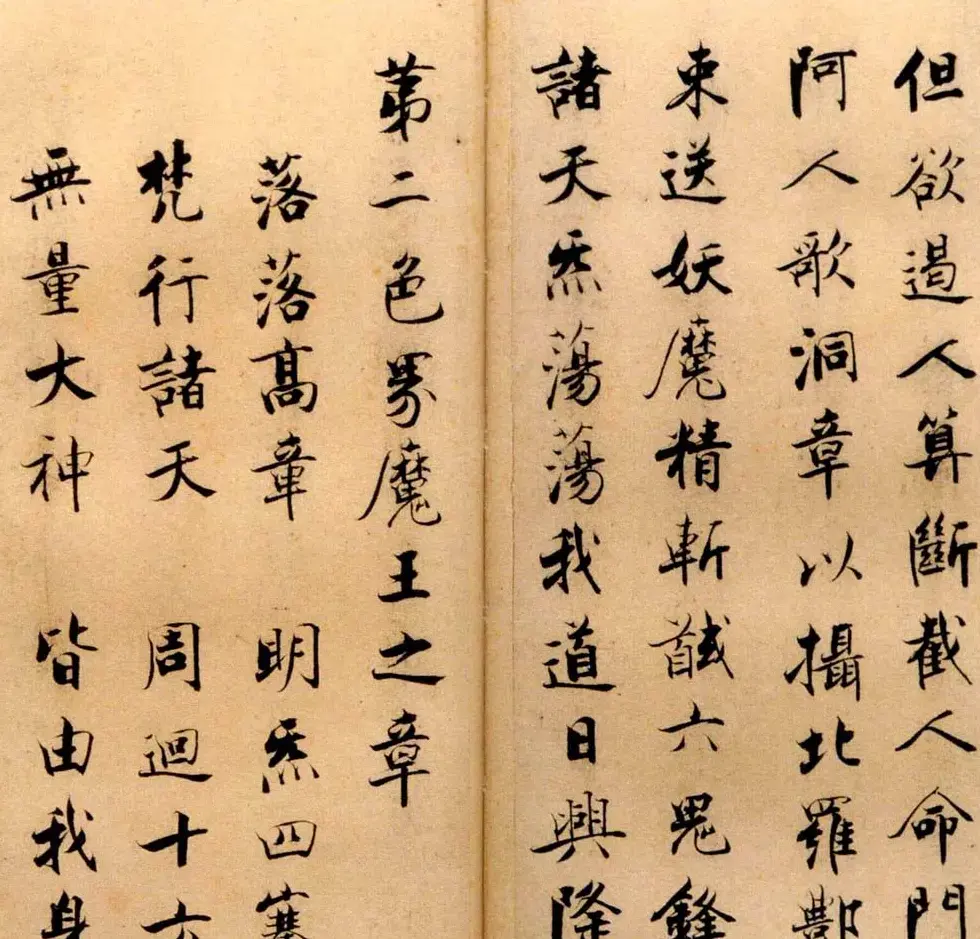 但欲遏人算斷截人命門
阿人歌洞章以攝北羅酆
束送妖魔精斬馘六鬼鋒
諸天炁蕩蕩我道日興隆
苐二色界魔王之章
落落髙章 明炁四
梵行諸天 周迴十
無量大神 皆由我身